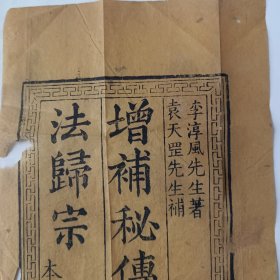 李淳風先生著
袁天罡先生補
增補秘傳
法歸宗
本